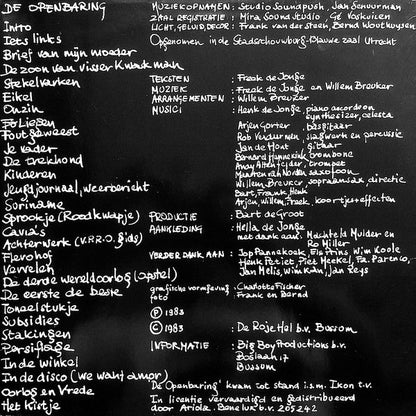 DE OPENBARING
Intro
Iets links
Brief van mijn moeder
De zoon van visser Kwakman
Stekelvarken
Eikel
Onzin
Foliezen
Fout geweest
Je vader
De trekhond
Kinderen
Jeugdjournaal, weerbericht
Suriname
Sprookje (Roodkapje)
Cavia's
Achterwerk (V.P.R.O. gids)
Flevohof
Vervelen
De derde wereldoorlog (apstel)
De eerste de beste
Toneelstukje
Subsidies
Stakingen
Persiflage
In de winkel
In de disco (we want amor)
Oorlog en Vrede
Het kistje
MUZIEKOPNAMEN : Studio Soundpush, Jan Schuurman
ZAAL REGISTRATIE : Mira Sound studio, Ge Voskuilen
LICHT, GELUID, DECOR : Frank van der Steen, Bernd Wouthuysen
Opgenomen in de Stadsschouwburg-Blauwe zaal Utrecht
TEKSTEN : Freek de Jonge
MUZIEK : Freek de Jonge en Willem Breuker
ARRANGEMENTEN : Willem Breuker
MUSICI : Henk de Jonge, piano accordeon
synthesizer, celesta
Arjen Gorter , basgitaar
Rob Verdurmen , slagwerk en percussie
Jan de Hont , gitaar
Bernard Hunnekink, trombone
Andy Altenfelder, trompet
Maarten van Norden saxofoon
Willem Breuker, sopraansax, directie
Bart, Frank, Henk
Arjen, Willem, Freek, koortjes+effecten
PRODUCTIE : Bart de Groot
AANKLEDING : Hella de Jonge
met dank aan: Machteld Mulder en
Ro Miller
VERDER DANK AAN : Jop Pannekoek, Els Prins, Wim Koole
Henk Petiet, Piet Meekel, Fa. Parten Co,
Jan Melis, Wim Kan, Jan Reijs
grafische vormgeving : Charlotte Fischer
foto : Frank en Bernd
Ⓟ 1983
© 1983 : De Rode Hel b.v. Bussum
INFORMATIE : Big Boy Productions b.v.
Boslaan 17
Bussum
'De Openbaring' kwam tot stand i.s.m. Ikon t.v.
In licentie vervaardigd en gedistribueerd
door Ariola. Benelux b.v. 205242